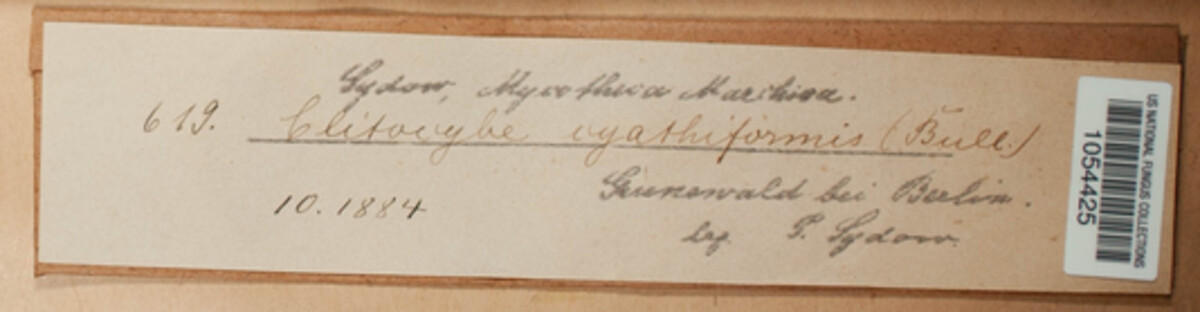 Sydow, Mycotheca Marchica.
619. Clitocybe cyathiformis (Bull.)
10. 1884
Grunewald bei Berlin.
leg. P. Sydow.
US NATIONAL FUNGUS COLLECTIONS
1054425